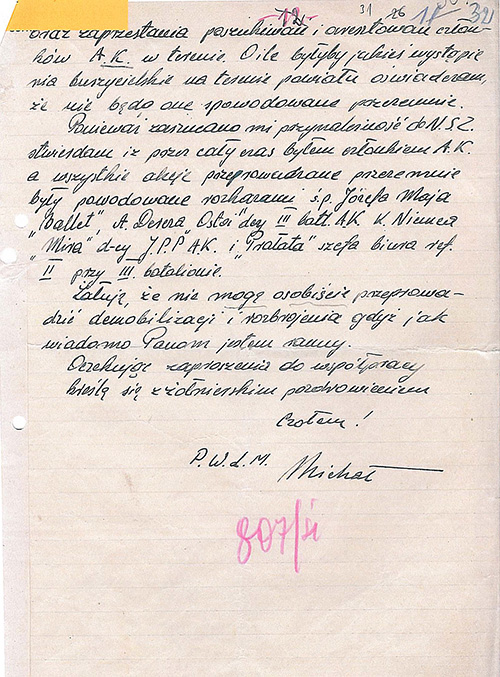 12 31 26 17 32
oraz zaprzestania poszukiwań i aresztowań człon-
ków A.K. w terenie. O ile byłyby jakieś wystąpie
nia burzycielskie na terenie powiatu oświadczam,
że nie będą one spowodowane przezemnie.
Ponieważ zarzucano mi przynależność do N.S.Z.
stwierdzam iż przez cały czas byłem członkiem A.K.
a wszystkie akcje przeprowadzane przezemnie
były powodowane rozkazami ś.p. Józefa Maja
"Ballet", A. Desera "Ostoi" dcy III batl. A.K. K. Niemca
"Mira" d-cy J.P.P A.K. i "Tratata" szefa biura ref.
II przy III batalionie.
Żałuję, że nie mogę osobiście przeprowa-
dzić demobilizacji i rozbrojenia gdyż jak
wiadomo Panom jestem ranny.
Oczekując zaproszenia do współpracy
kreślę się z żołnierskim pozdrowieniem
Czołem!
P.W.d.M. Michał
807/